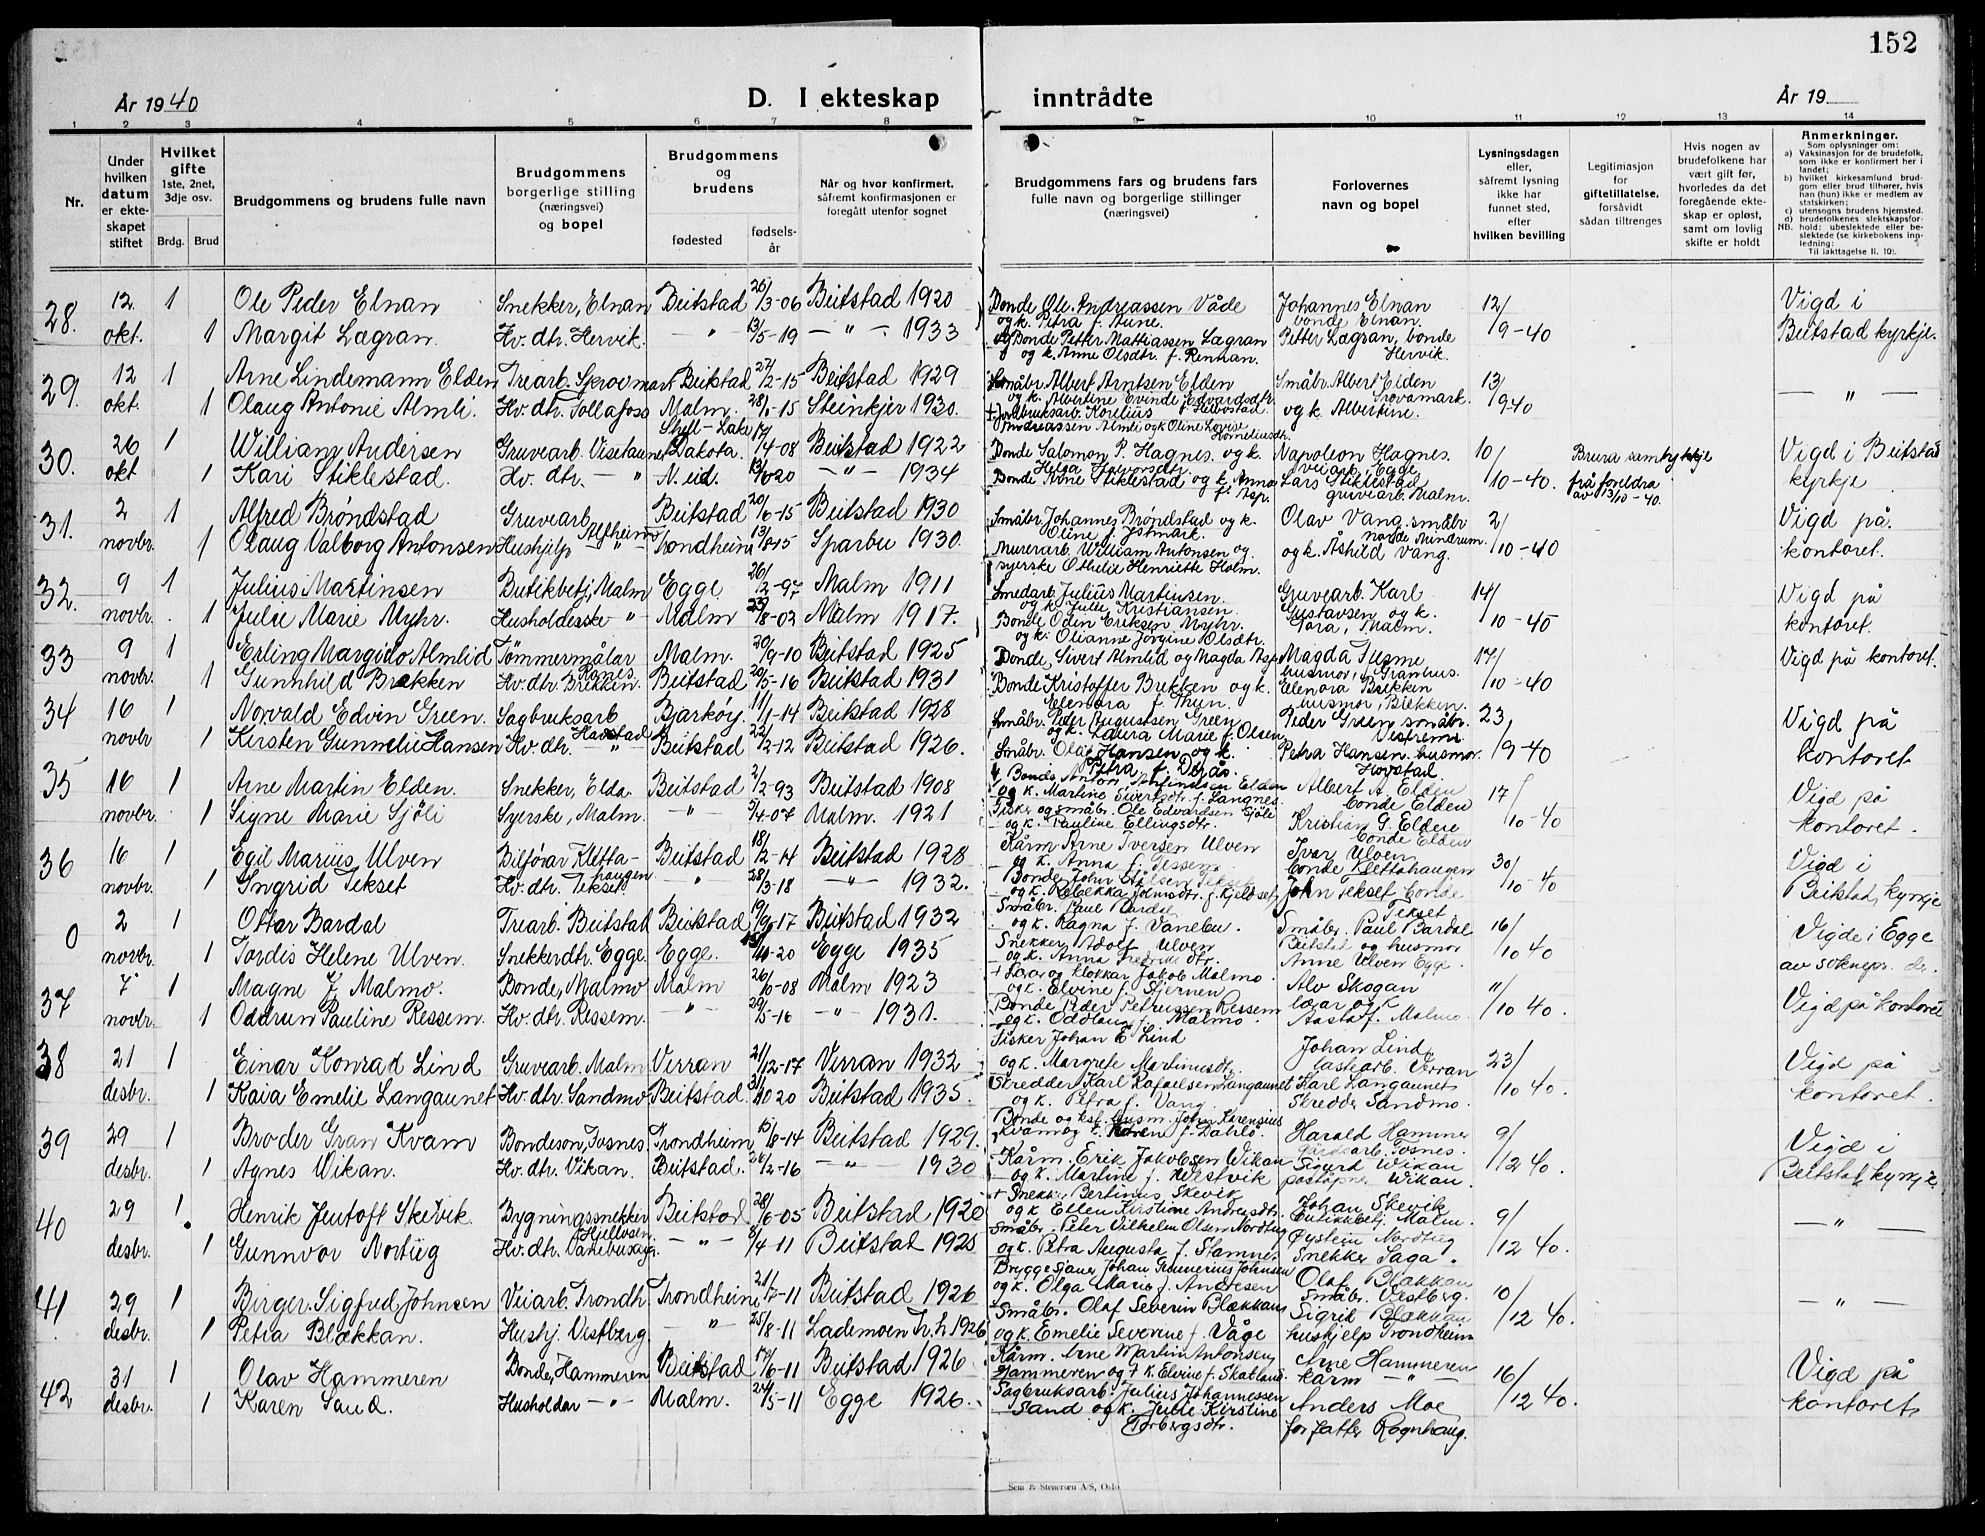 152
År 1940
D. I ekteskap inntrådte
År 19
1 2 3 4 5 6 7 8 9 10 11 12 13 14
Nr.
Under hvilken datum er ekteskapet stiftet
Hvilket gifte 1ste, 2net, 3dje osv.
Brdg. Brud
Brudgommens og brudens fulle navn
Brudgommens borgerlige stilling (næringsvei) og bopel
Brudgommens og brudens
fødested
fødselsår
Når og hvor konfirmert, såfremt konfirmasjonen er foregått utenfor sognet
Brudgommens fars og brudens fars fulle navn og borgerlige stillinger (næringsvei)
Forlovernes navn og bopel
Lysningsdagen eller, såfremt lysning ikke har funnet sted, efter hvilken bevilling
Legitimasjon for giftetillatelse, forsåvidt sådan tiltrenges
Hvis nogen av brudefolkene har vært gift før, hvorledes da det foregående ekteskap er opløst, samt om lovlig skifte er holdt
Anmerkninger.
Som oplysninger om:
a) Vaksinasjon for de brudefolk, som ikke er konfirmert her i landet;
b) hvilket kirkesamfund brudgom eller brud tilhører, hvis han (hun) ikke er medlem av statskirken;
c) utensogns brudens hjemsted.
d) brudefolkenes slektskapsforhold: ubeslektede eller beslektede (se kirkebokens innledning;
NB.
Til iakttagelse II. 10).
28. 12 1 Ole Peder Elnan Snekker, Elnan Beitstad 26/3-06 Beitstad 1920 Bonde Ole Andreassen Våde og k. Petra f. Aune. Johannes Elnan bonde Elnan. 12/9-40 Vigd i
okt. 1 Margit Lægran. Hv. dtr. Hervik. " 13/5-19 " 1933 Bonde Petter Mattiassen Lægran og k. Anne Olsdtr. f. Rennan. Petter Lægran, bonde Hervik. Beitstad kyrkje.
29. 12 1 Arne Lindemann Elden Trearb. Beitstad 27/2-15 Beitstad 1929 Småbr. Albert Arntsen Elden og k. Albertine Evinde Edvardsdtr. Småbr. Albert Elden 13/9-40 "
okt. 1 Olaug Antonie Almli. Hv. dtr. Follafoss Malm. 15 Steinkjer 1930. Andreassen Almli og k. Oline Lovise Korneliusdtr. og k. Albertine.
30. 26 1 William Andersen Gruvearb. Dakota. 4-08 Beitstad 1922 Bonde Salomon P. Hagnes og k. Helga Halvorsdtr. Napoleon Hagnes veiarb. Egge 10/10-40. Brura samtykkje Vigd i Beitstad
okt 1 Kari Stiklestad. Hv. dtr. " N. eid. 20 " 1934 Bonde Arne Stiklestad og k. Anna f. Asp. Lars Stiklestad gruvearb. Malm. frå foreldra av 13/10-40. kyrkje
31. 2 1 Alfred Brøndstad Gruvearb. Alfheim Beitstad 20/6-15 Beitstad 1930 Småbr. Johannes Brøndstad og k. Oline f. Olav Vang småbr 2/10-40 Vigd på
novbr. 1 Olaug Valborg Antonsen Hushjelp " Trondheim 13/8 15 Sparbu 1930. Murerarb. William Antonsen og syerske Othelie Henriette Holm. og k. Åshild Vang. kontoret.
32. 9 1 Julius Martinsen Butikbetj. Malm Egge 26/2-97 Malm 1911 Smedarb. Julius Martinsen og k. Julie Kristiansen. Gruvearb. Karl Gustavsen og k. 14/10-40 Vigd på
novbr. 1 Julie Marie Myhr. Husholderske " Malm 8-02 Malm 1917. Bonde Oden Eriksen Myhr og k. Olianne Jørgine Olsdtr. Tora, Malm. kontoret.
33 9 1 Erling Margido Almlid Tømmermålar Malm. 20/9-10 Beitstad 1925 Bonde, Sivert Almlid og Magda Asp Magda Tusme husmor, Granhus. 17/10-40 Vigd på kontoret.
novbr. 1 Gunnhild Brekken Hv. dtr. Brekken. Beitstad 20/5-16 Beitstad 1931 Bonde Kristoffer Brekken og k. Elenora f. Thun. Elenora Brekken husmor, Brekken.
34 16 1 Norvald Edvin Green. Sagbruksarb Bjarkøy. 11/1-14 Beitstad 1928 Småbr. Peter Augustsen Green og k. Laura Marie f. Olsen Peder Green småbr. 23/9-40 Vigd på
novbr 1 Kirsten Gunnelie Hansen Hv. dtr. " Beitstad 22/2-12 Beitstad 1926. Småbr. Olaf Hansen og k. Petra f. Derås. Petra Hansen husmor kontoret
35 16 1 Arne Martin Elden. Snekker, Elda. Beitstad 2/2-93 Beitstad 1908 Bonde Anton Elden og k. Martine Sivertsdtr. f. Langnes. Albert A. Elden bonde Elden 17/10-40 Vigd på
novbr. 1 Signe Marie Sjøli Syerske, Malm. " 4-07 Malm. 1921 Fisker og småbr. Ole Edvardsen Sjøli og k. Pauline Ellingsdtr. Kristian G. Elden bonde Elden kontoret.
36 16 1 Egil Marius Ulven Bilførar Klettahaugen Beitstad 18/2-14 Beitstad 1928 Kårm. Arne Iversen Ulven og k. Anna f. Tessem. Ivar Ulven bonde Klettahaugen 30/10-40 Vigd i
novbr. 1 Ingrid Tekset Hv. dtr. Tekset " 28/3-18 " 1932. Bonde John Tekset og k. Rebekka Johnsdtr. f. Kjeldset John Tekset bonde Tekset Beitstad kyrkje
0 2 1 Ottar Bardal Trearb. Beitstad Beitstad 19/9-17 Beitstad 1932 Småbr. Paul Bardal og k. Ragna f. Vanebu. Småbr. Paul Bardal Beitstad og husmor 16/10 40 Vigde i Egge
novbr. 1 Tordis Helene Ulven. Snekkerdtr. Egge. Egge. 20 Egge 1935 Snekker Adolf Ulven og k. Anna Fredrikkdtr. Anne Ulven Egge. av soknepr. der.
37 7 1 Magne J. Malmo. Bonde, Malmo Malm 26/6-08 Malm 1923 Lærar og klokkar Jakob Malmo. og k. Elvine f. Stjernen Alv Skogan 11/10 40. Vigd på kontoret
novbr. 1 Oddrun Pauline Ressem. Hv. dtr. Ressem. " 29/5-16 " 1931. Bonde Peder Petrussen Ressem og k. Oddlaug f. Malmo. lærar og k. Aasta f. Malmo.
38 21 1 Einar Konrad Lind Gruvearb. Malm Verran 21/12-17 Verran 1932 Fisker Johan E. Lind og k. Margrete Martinusdtr. Johan Lind lastearb. Verran 23/10 40. Vigd på
desbr. 1 Kaia Emelie Langaunet Hv. dtr. Sandmo Beitstad. 20 Beitstad 1935. Skredder Karl Rafaelsen Langaunet og k. Petra f. Vang. Karl Langaunet Skredder Sandmo. kontoret.
39 29 1 Broder Gran Kvam Bondeson, Fosnes. Trondheim 15/8-14 Beitstad 1929. Bonde og husm. John Kvam og k. Karen f. Dahlø. Harald Hammer Fosnes. 9/12 40. Vigd i
desbr. 1 Agnes Wikan. Hv. dtr. Vikan. Beitstad. 2-16 " 1930 Kårm. Erik Jakobsen Wikan og k. Martine f. Westvik Sigurd Wikan Wikan. Beitstad kyrkje
40 29 1 Henrik Jentoft Skevik. Bygningssnekker Hjellosen Beitstad 28/6-05 Beitstad 1920 Snekk. Bertinus Skevik og k. Ellen Kirstine Andreasdtr. Johan Skevik butikkbetj. Malm. 9/12 40. "
desbr. 1 Gunnvor Nortug Hv. dtr. " 4-11 Beitstad 1925 Småbr. Peter Vilhelm Olsen Nordtug og k. Petra Augusta f. Stamnes Øystein Nordtug Snekker Saga.
41 29 1 Birger Sigfred Johnsen Veiarb. Trondh. Trondheim 21/7-11 Beitstad 1926 Bryggesjauer Johan Gunnerius Johnsen og k. Olga Marie f. Andresen Olaf Blækkan Småbr. Vestberg. 10/12 40. "
desbr. 1 Petra Blækkan. Hushj. Vestberg " 25/8-11 Lademoen Tr.h. 1926 Småbr. Olaf Severin Blækkan og k. Emelie Severine f. Våge Sigrid Blækkan hushjelp Trondheim
42 31 1 Olav Hammeren Bonde, Hammeren Beitstad 6-11 Beitstad 1926 Kårm. Arne Martin Antonsen Hammeren og + k. Elvine f. Skatland. Arne Hammeren kårm " 16/12 40. Vigd på
desbr. 1 Karen Sand. Husholdar " Malm. 5-11 Egge 1926. Sagbruksarb. Julius Johannessen Sand og k. Julie Kirstine Torbergsdtr. Anders Moe forfatter Rognhaug. kontoret
Sem & Stenersen A/S, Oslo